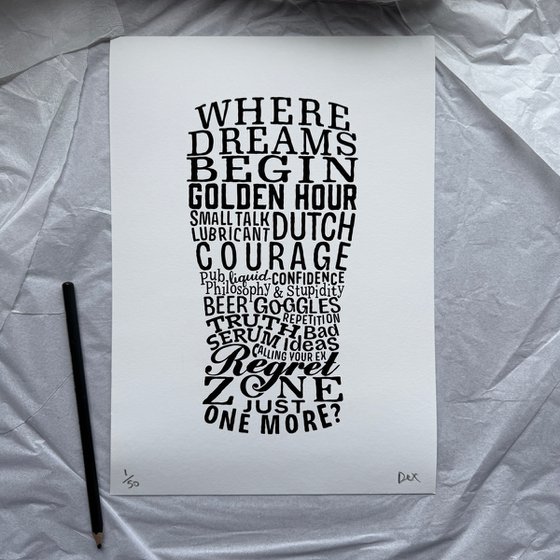 WHERE
DREAMS
BEGIN
GOLDEN HOUR
SMALL TALK
LUBRICANT
DUTCH
COURAGE
Pub liquid CONFIDENCE
Philosophy & Stupidity
BEER GOGGLES
REPETITION
TRUTH
SERUM
Bad
Ideas
CALLING YOUR EX
Regret
ZONE
JUST
ONE MORE?
1/50
Dex